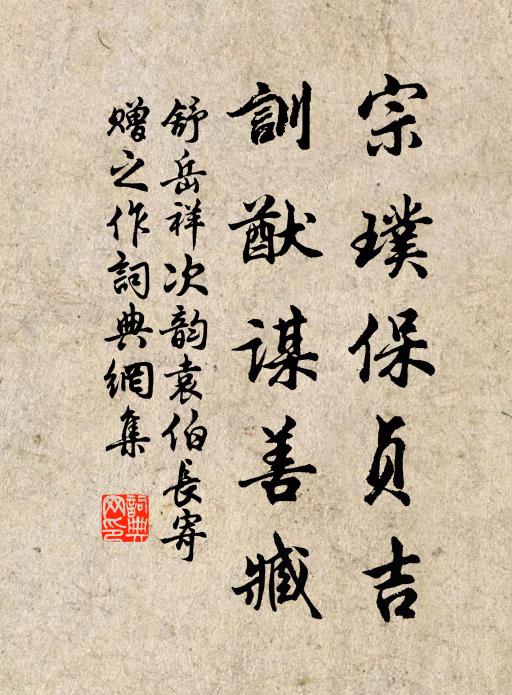 宗璞保貞吉
訓猷謀善臧
舒岳祥次韵袁伯長寄
贈之作詞典網集
詞典網印